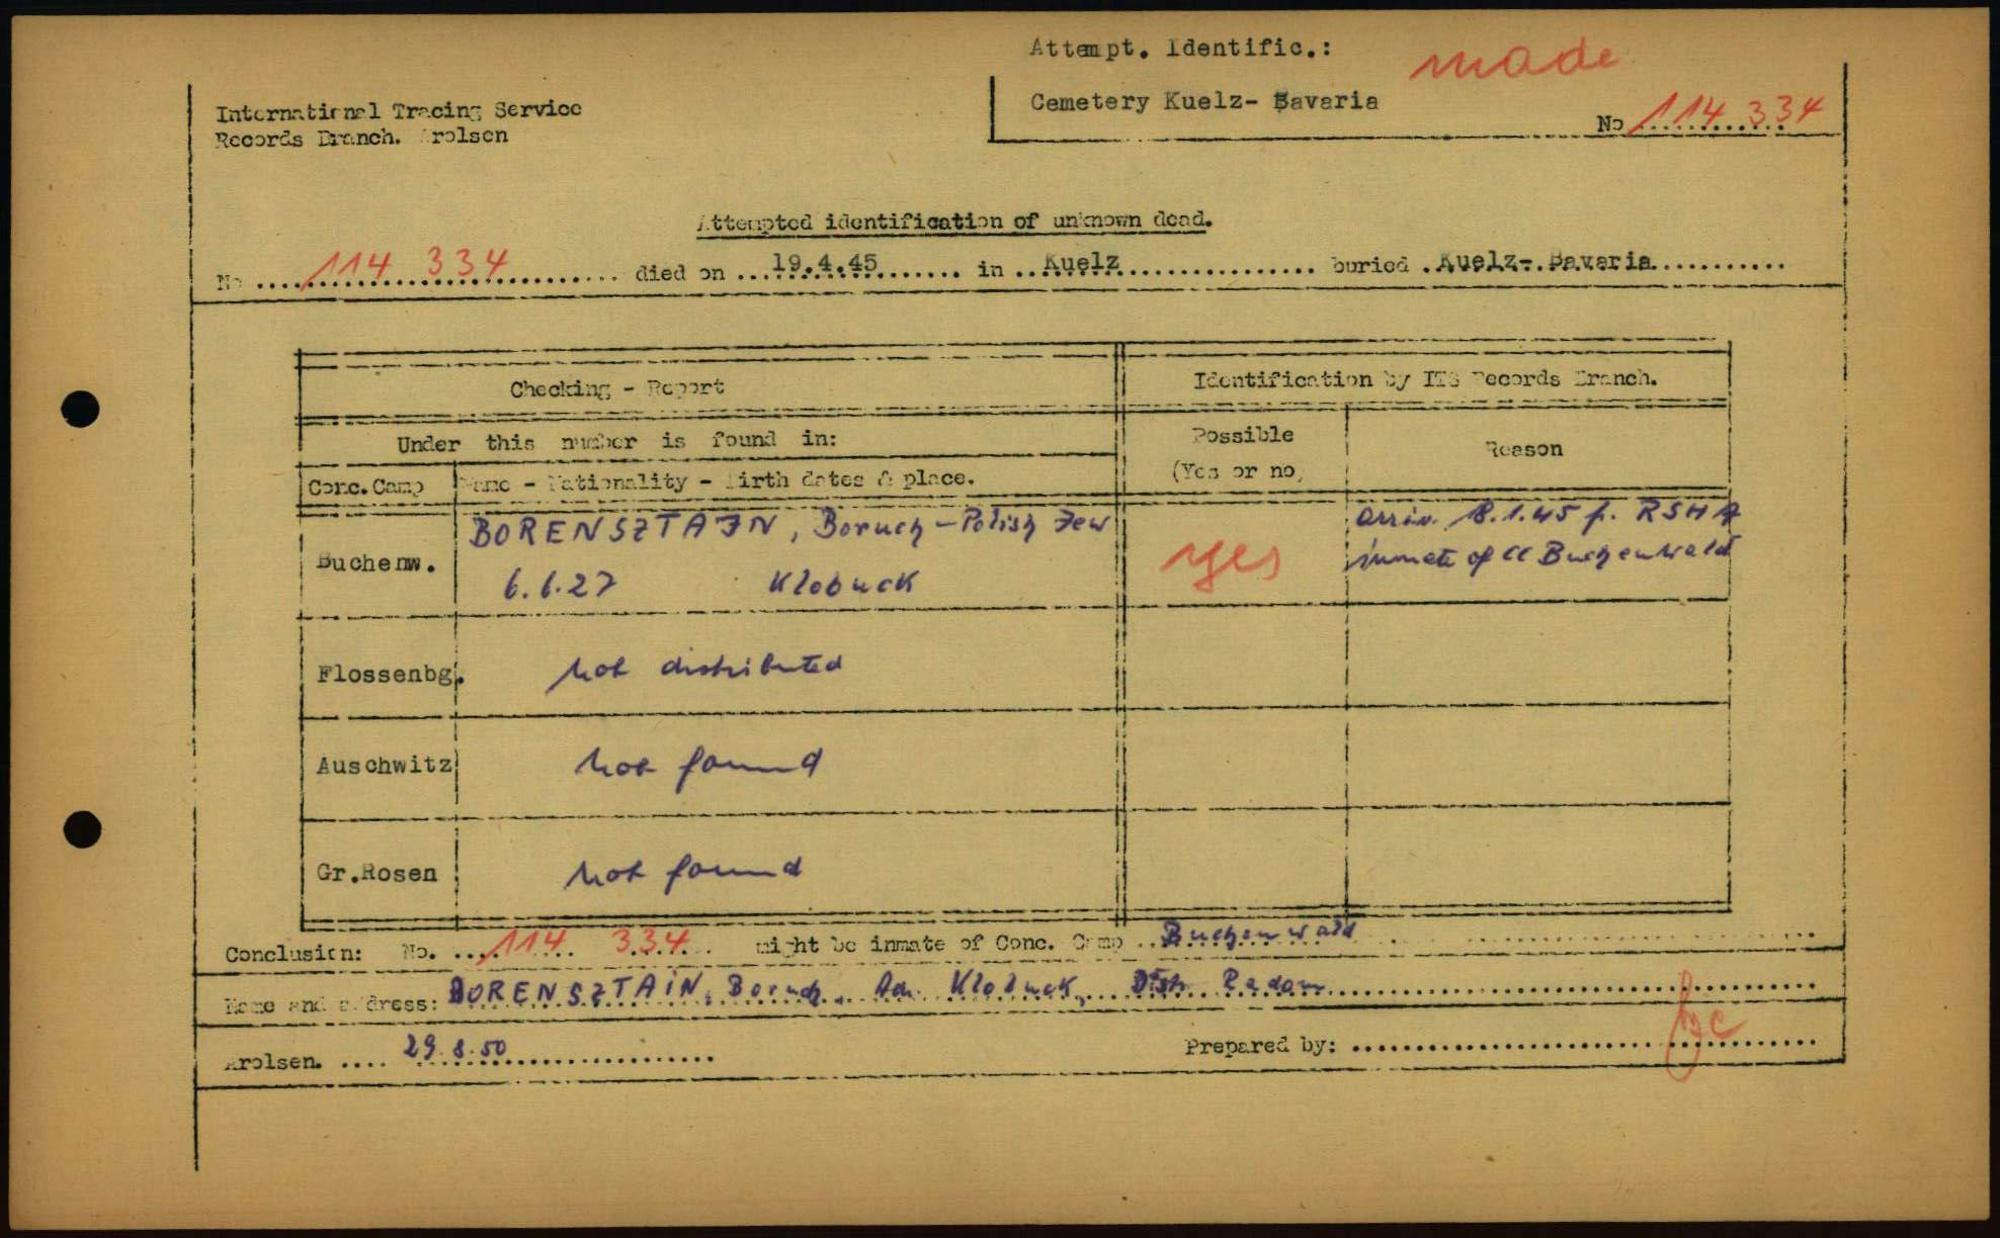 Attempt. Identific.: made
Cemetery Kuelz- Bavaria
No 114 334
International Tracing Service
Records Branch. Arolsen
Attempted identification of unknown dead.
No ..... 114 334 ..... died on ... 19.4.45 ..... in .. Kuelz ..... buried . Kuelz- Bavaria .....
Checking - Report
Identification by ITS Records Branch.
Under this number is found in:
Possible
(Yes or no)
Reason
Conc.Camp
Name - Nationality - Birth dates & place.
Buchenw.
BORENSZTAJN, Boruch - Polish Jew
6.6.27 Klobuck
yes
arriv. 18.1.45 f. RSHA
inmate of CC Buchenwald
Flossenbg. not distributed
Auschwitz not found
Gr.Rosen not found
Conclusion: No. .... 114 334 .. might be inmate of Conc. Camp .. Buchenwald .....
Name and address: BORENSZTAIN, Boruch, Klobuck, Distr. Radom .....
Arolsen. .... 29.8.50 .....
Prepared by: .....